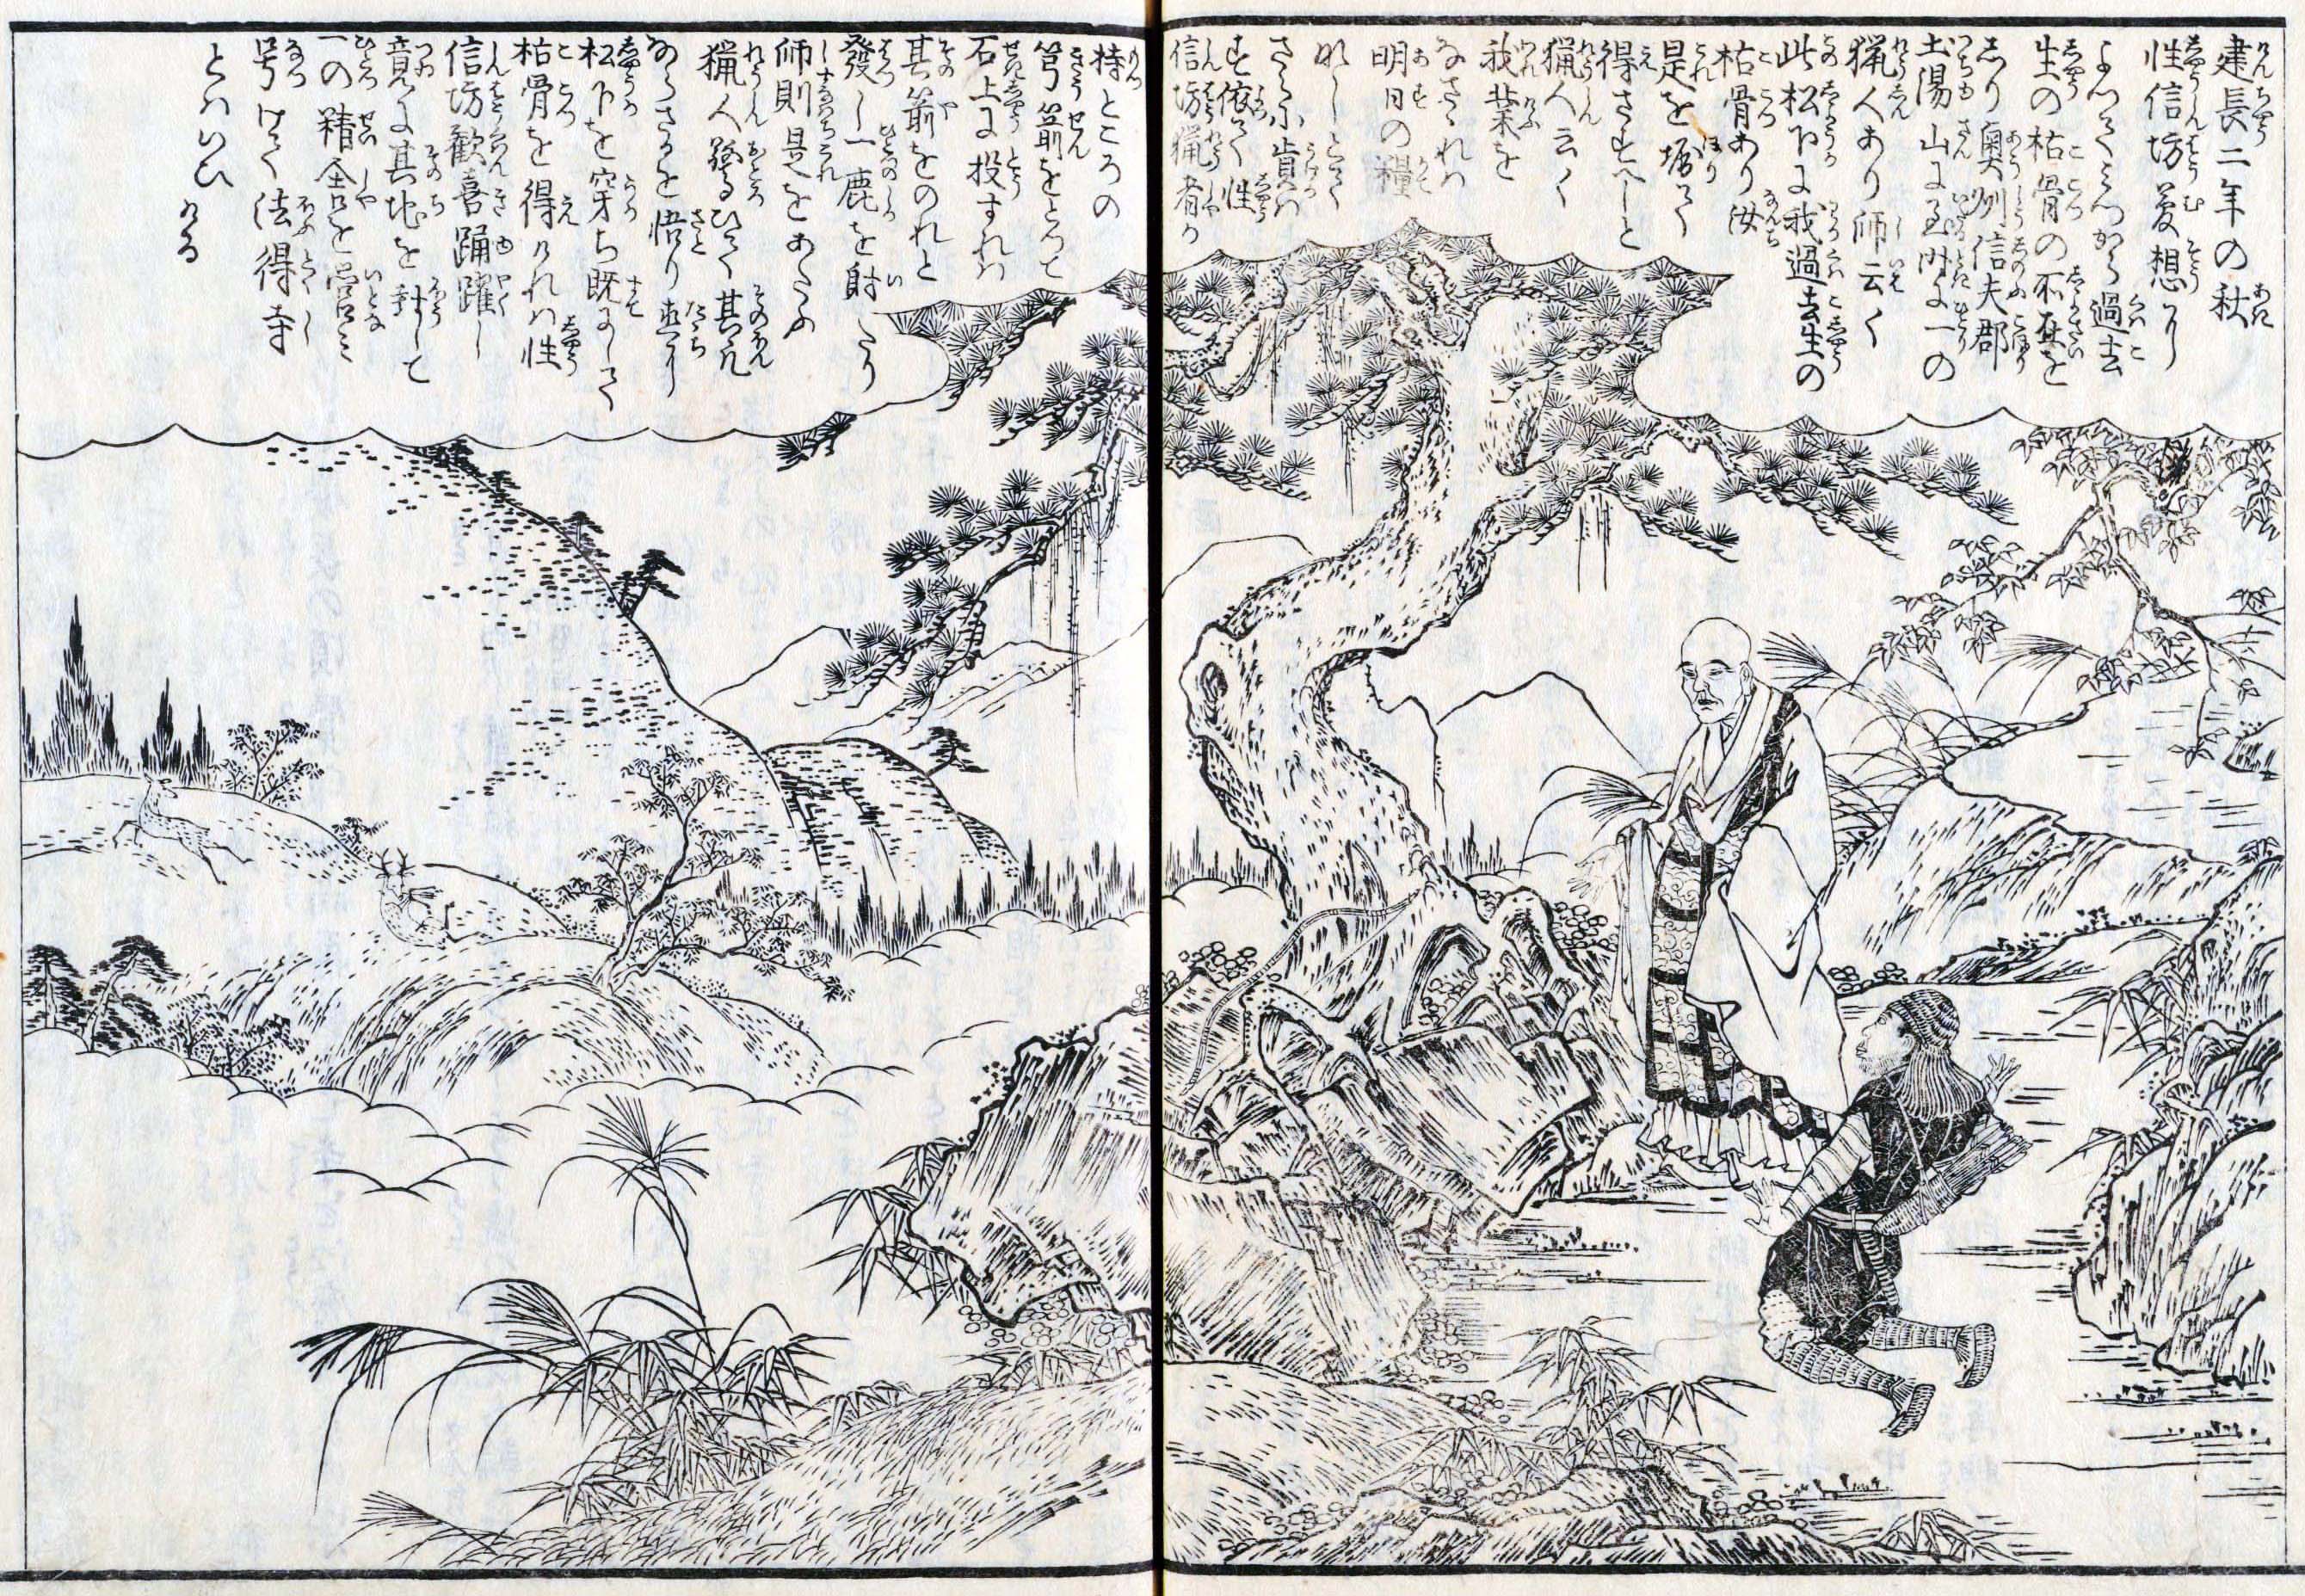 建長二年の秋
性信坊夢想に
よつてみつから過去
生の枯骨の不在を
しり奥州信夫郡
土湯山に至時に一の
猟人あり師云く
此松下に我過去生の
枯骨あり汝
是を堀て
得さすへしと
猟人云く
我業を
なされは
明日の糧
なしとて
さらに肯は
す依て性
信坊猟者か
持ところの
弓箭をとつて
石上に投すれは
其箭をのれと
發し一鹿を射たり
師則是をあたふ
猟人驚ひて其凡
ならさるを悟り直に
松下を穿ち既にして
枯骨を得けれは性
信坊歓喜踊躍し
竟に其地を封して
一の精舎を営み
号けて法得寺
とはいひ
ける